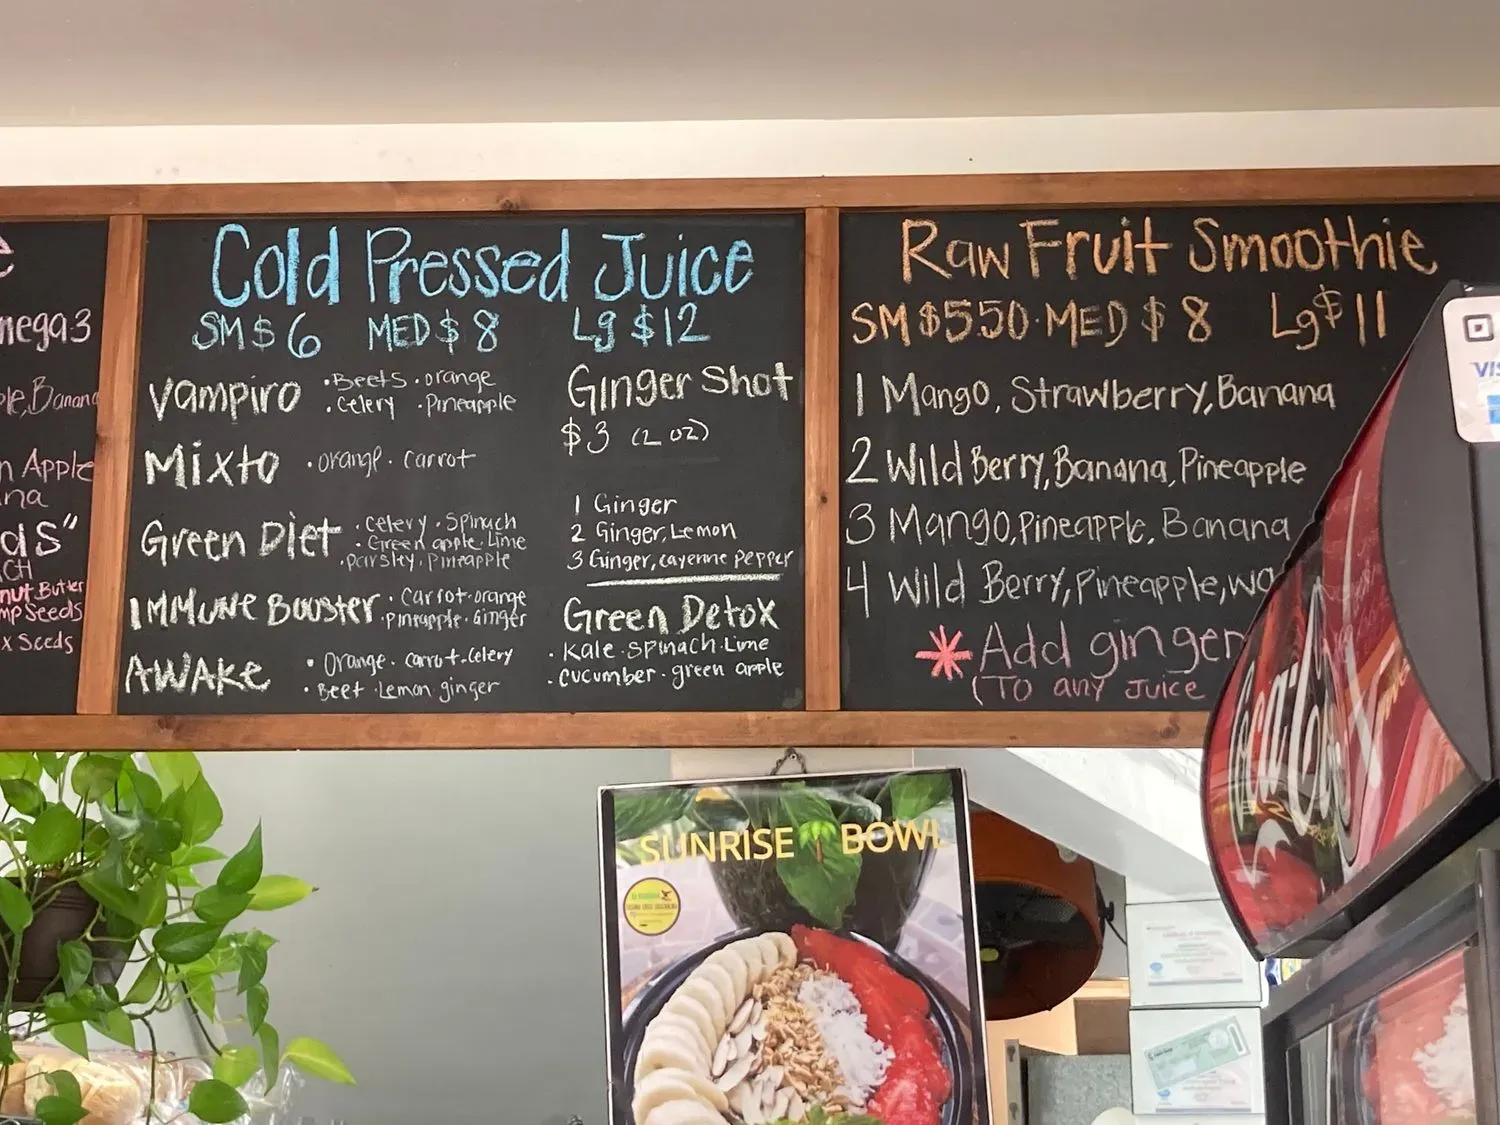 mega3
Banana
Apple
Seeds
Cold Pressed Juice
SM $6 MED $8 Lg $12
Vampiro
• Beets • orange
• celery • Pineapple
Mixto • orange • carrot
Green Diet
• celery • Spinach
• Green apple • Lime
• parsley • pineapple
IMMUNE BOOSTER
• Carrot • orange
• pineapple • Ginger
AWAKE
• Orange • carrot • celery
• Beet • Lemon ginger
Ginger Shot
$3 (2 oz)
1 Ginger
2 Ginger, Lemon
3 Ginger, cayenne pepper
Green Detox
• Kale • Spinach • Lime
• cucumber • green apple
Raw Fruit Smoothie
SM $5.50 • MED $8 Lg $11
1 Mango, Strawberry, Banana
2 Wild Berry, Banana, Pineapple
3 Mango, Pineapple, Banana
4 Wild Berry, Pineapple,
* Add ginger
(To any Juice
Coca-Cola
SUNRISE BOWL